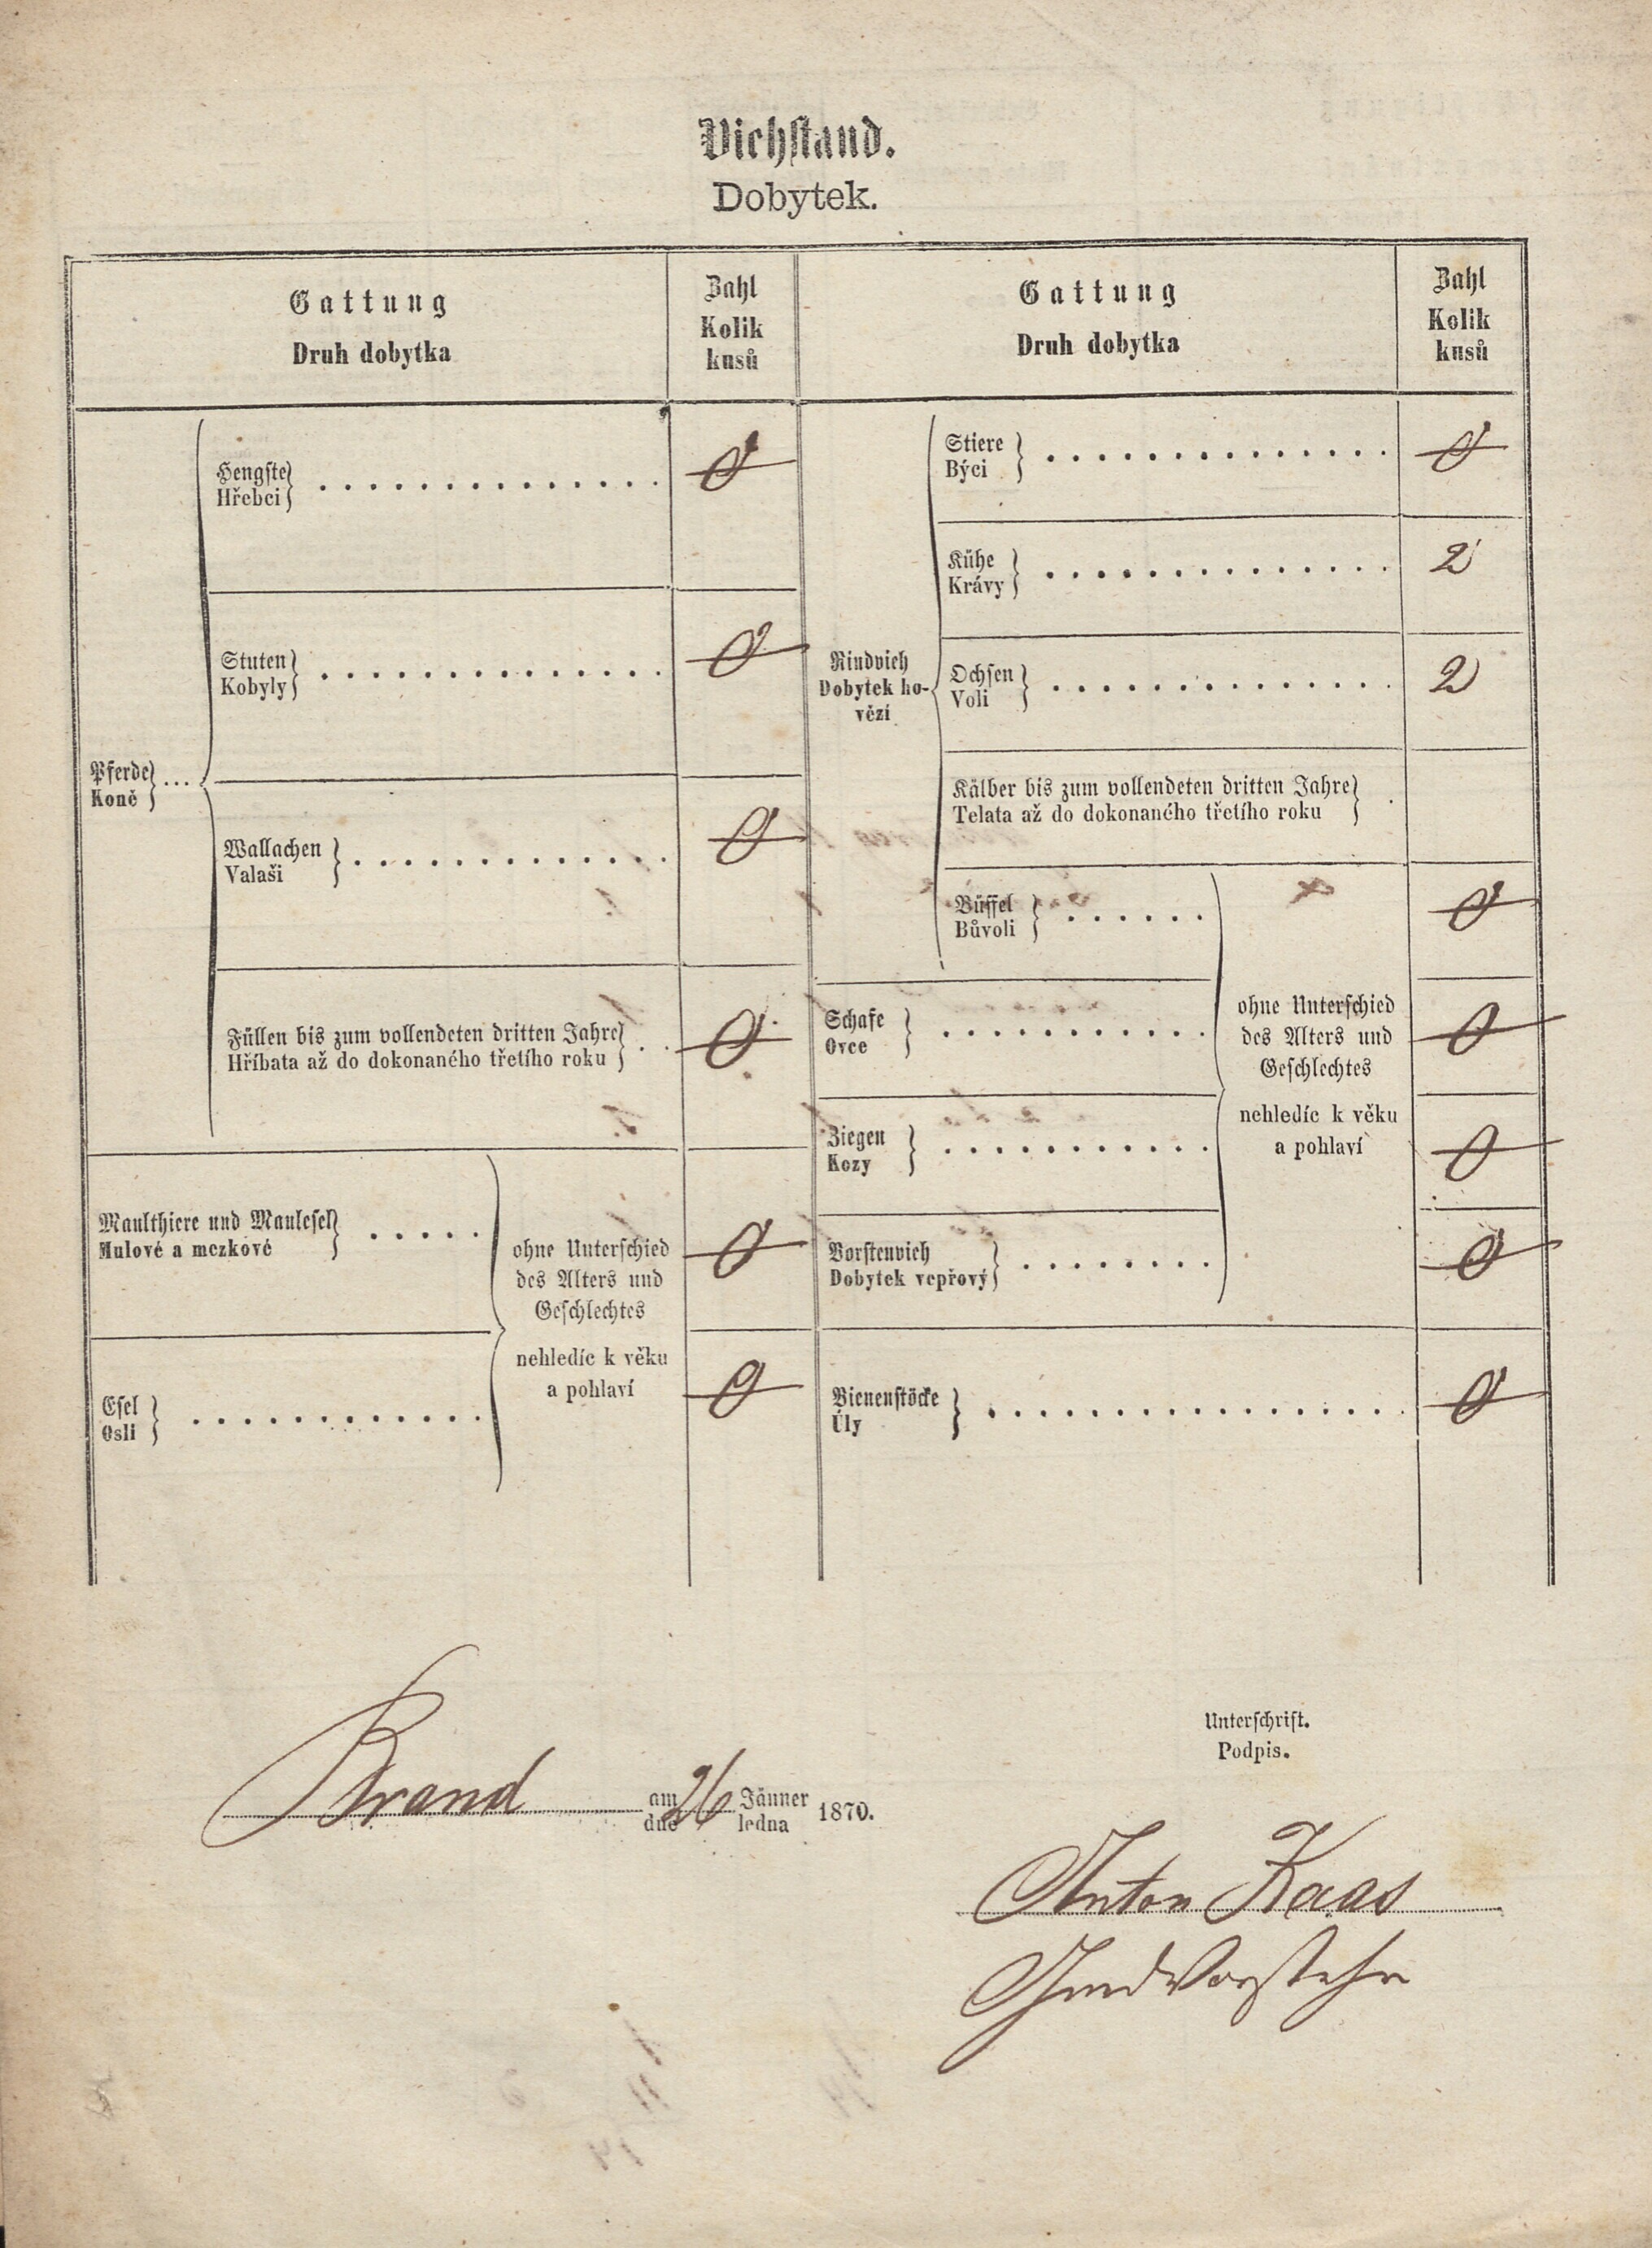 Viehstand.
Dobytek.
Gattung
Druh dobytka
Zahl
Kolik
kusů
Gattung
Druh dobytka
Zahl
Kolik
kusů
Pferde
Koně
Hengste
Hřebci
0
Stuten
Kobyly
0
Wallachen
Valaši
0
Füllen bis zum vollendeten dritten Jahre
Hříbata až do dokonaného třetího roku
0
Maulthiere und Maulesel
Mulové a mezkové
0
Esel
Osli
0
ohne Unterschied
des Alters und
Geschlechtes
nehledíc k věku
a pohlaví
Rindvieh
Dobytek ho-
vězí
Stiere
Býci
0
Kühe
Krávy
2
Ochsen
Voli
2
Kälber bis zum vollendeten dritten Jahre
Telata až do dokonaného třetího roku
Büffel
Bůvoli
0
Schafe
Ovce
0
Ziegen
Kozy
0
Borstenvieh
Dobytek vepřový
0
ohne Unterschied
des Alters und
Geschlechtes
nehledíc k věku
a pohlaví
Bienenstöcke
Úly
0
Brand am 26 Jänner 1870.
dne ledna
Unterschrift.
Podpis.
Anton Kaas